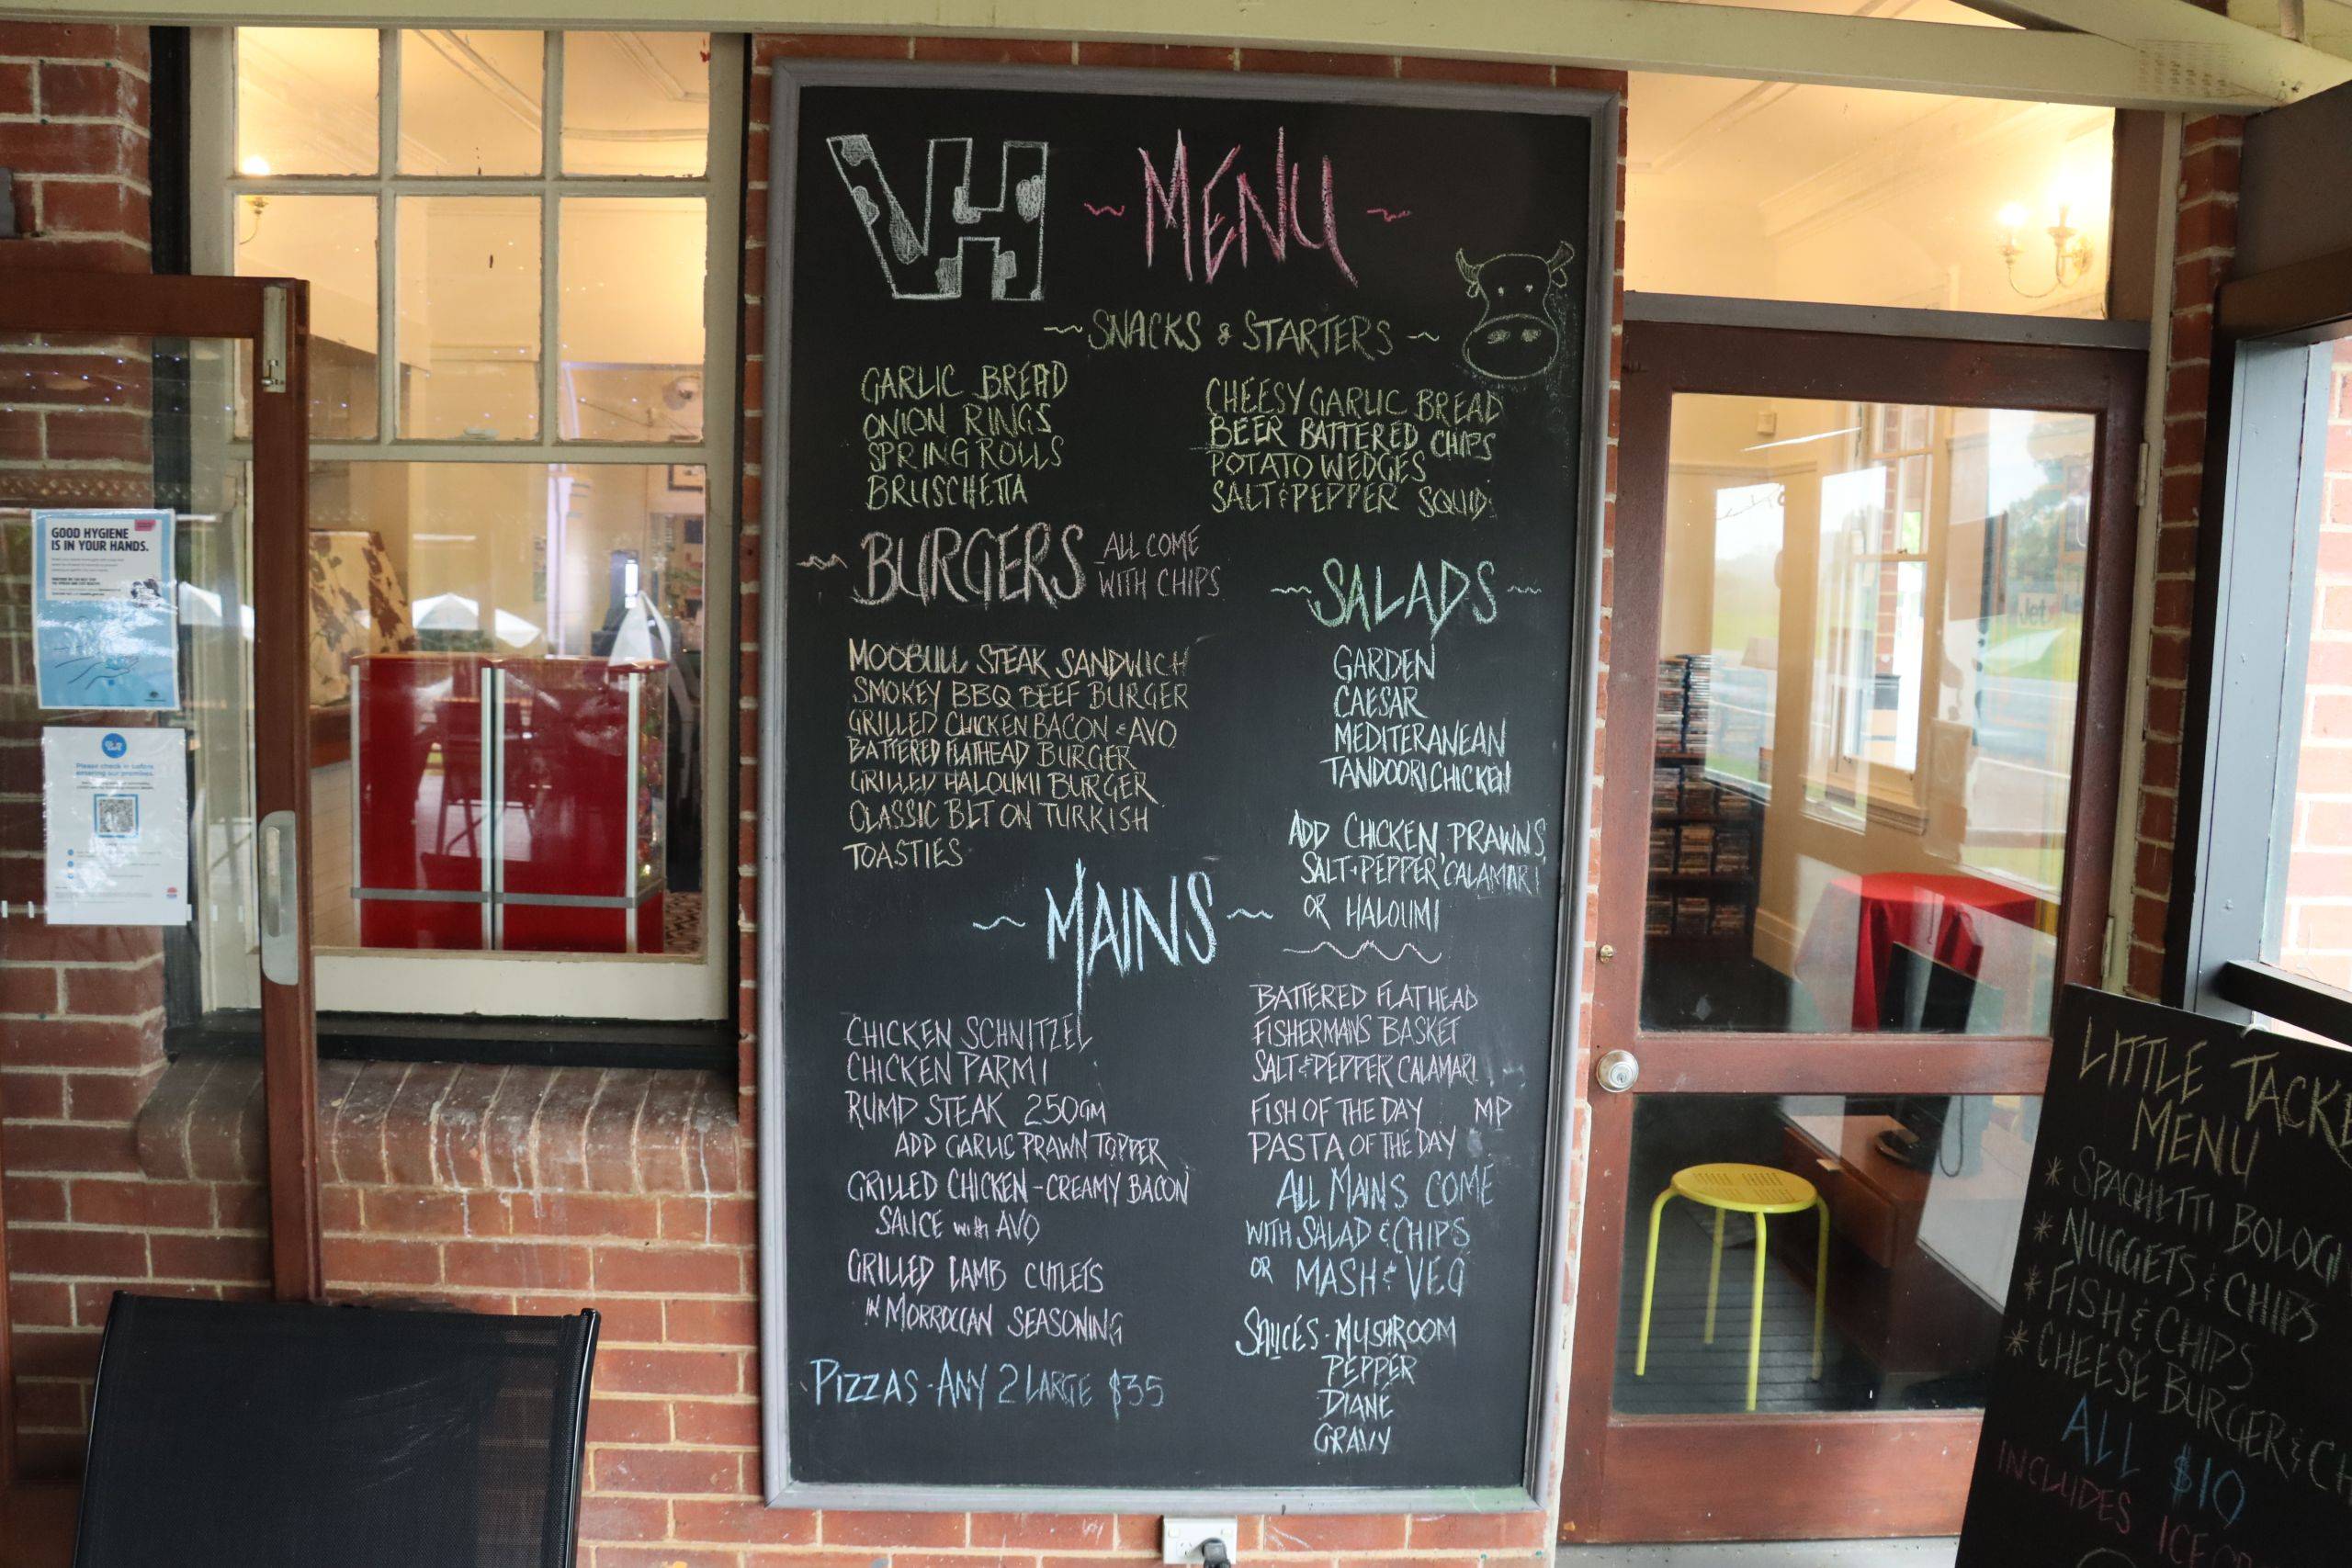 VH
~ MENU ~
~ SNACKS & STARTERS ~
GARLIC BREAD
ONION RINGS
SPRING ROLLS
BRUSCHETTA
CHEESY GARLIC BREAD
BEER BATTERED CHIPS
POTATO WEDGES
SALT & PEPPER SQUID
~ BURGERS ALL COME
WITH CHIPS
MOOBULL STEAK SANDWICH
SMOKEY BBQ BEEF BURGER
GRILLED CHICKEN BACON & AVO
BATTERED FLATHEAD BURGER
GRILLED HALOUMI BURGER
CLASSIC BLT ON TURKISH
TOASTIES
~ SALADS ~
GARDEN
CAESAR
MEDITERANEAN
TANDOORI CHICKEN
ADD CHICKEN, PRAWNS,
SALT & PEPPER CALAMARI
OR HALOUMI
~ MAINS ~
CHICKEN SCHNITZEL
CHICKEN PARMI
RUMP STEAK 250GM
ADD GARLIC PRAWN TOPPER
GRILLED CHICKEN - CREAMY BACON
SAUCE with AVO
GRILLED LAMB CUTLETS
IN MORROCCAN SEASONING
PIZZAS - ANY 2 LARGE $35
BATTERED FLATHEAD
FISHERMANS BASKET
SALT & PEPPER CALAMARI
FISH OF THE DAY MP
PASTA OF THE DAY
ALL MAINS COME
WITH SALAD & CHIPS
OR MASH & VEG
SAUCES - MUSHROOM
PEPPER
DIANE
GRAVY
GOOD HYGIENE
IS IN YOUR HANDS.
Please check in before
entering our premises.
LITTLE TACKE
MENU
* SPAGHETTI BOLOG
* NUGGETS & CHIPS
* FISH & CHIPS
* CHEESE BURGER & C
ALL $10
INCLUDES ICE